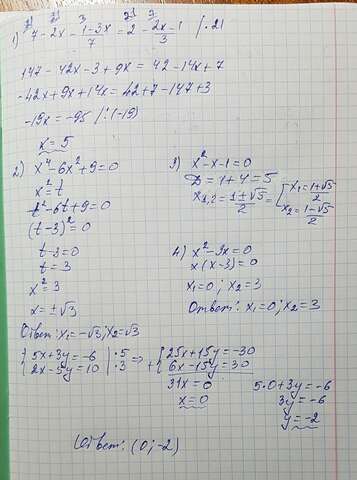 21 21 3 21 7
1) 7 - 2x - (1-3x)/7 = 2 - (2x-1)/3 | · 21
147 - 42x - 3 + 9x = 42 - 14x + 7
-42x + 9x + 14x = 42 + 7 - 147 + 3
-19x = -95 | : (-19)
x = 5
2) x⁴ - 6x² + 9 = 0
x² = t
t² - 6t + 9 = 0
(t-3)² = 0
t - 3 = 0
t = 3
x² = 3
x = ±√3
Ответ: x₁ = -√3; x₂ = √3
3) x² - x - 1 = 0
D = 1 + 4 = 5
x₁,₂ = (1±√5)/2 = [ x₁ = (1+√5)/2
x₂ = (1-√5)/2
4) x² - 3x = 0
x(x-3) = 0
x₁ = 0; x₂ = 3
Ответ: x₁ = 0; x₂ = 3
{ 5x + 3y = -6 | · 5 => + { 25x + 15y = -30
2x - 5y = 10 | · 3 6x - 15y = 30
31x = 0
x = 0
5·0 + 3y = -6
3y = -6
y = -2
Ответ: (0; -2)